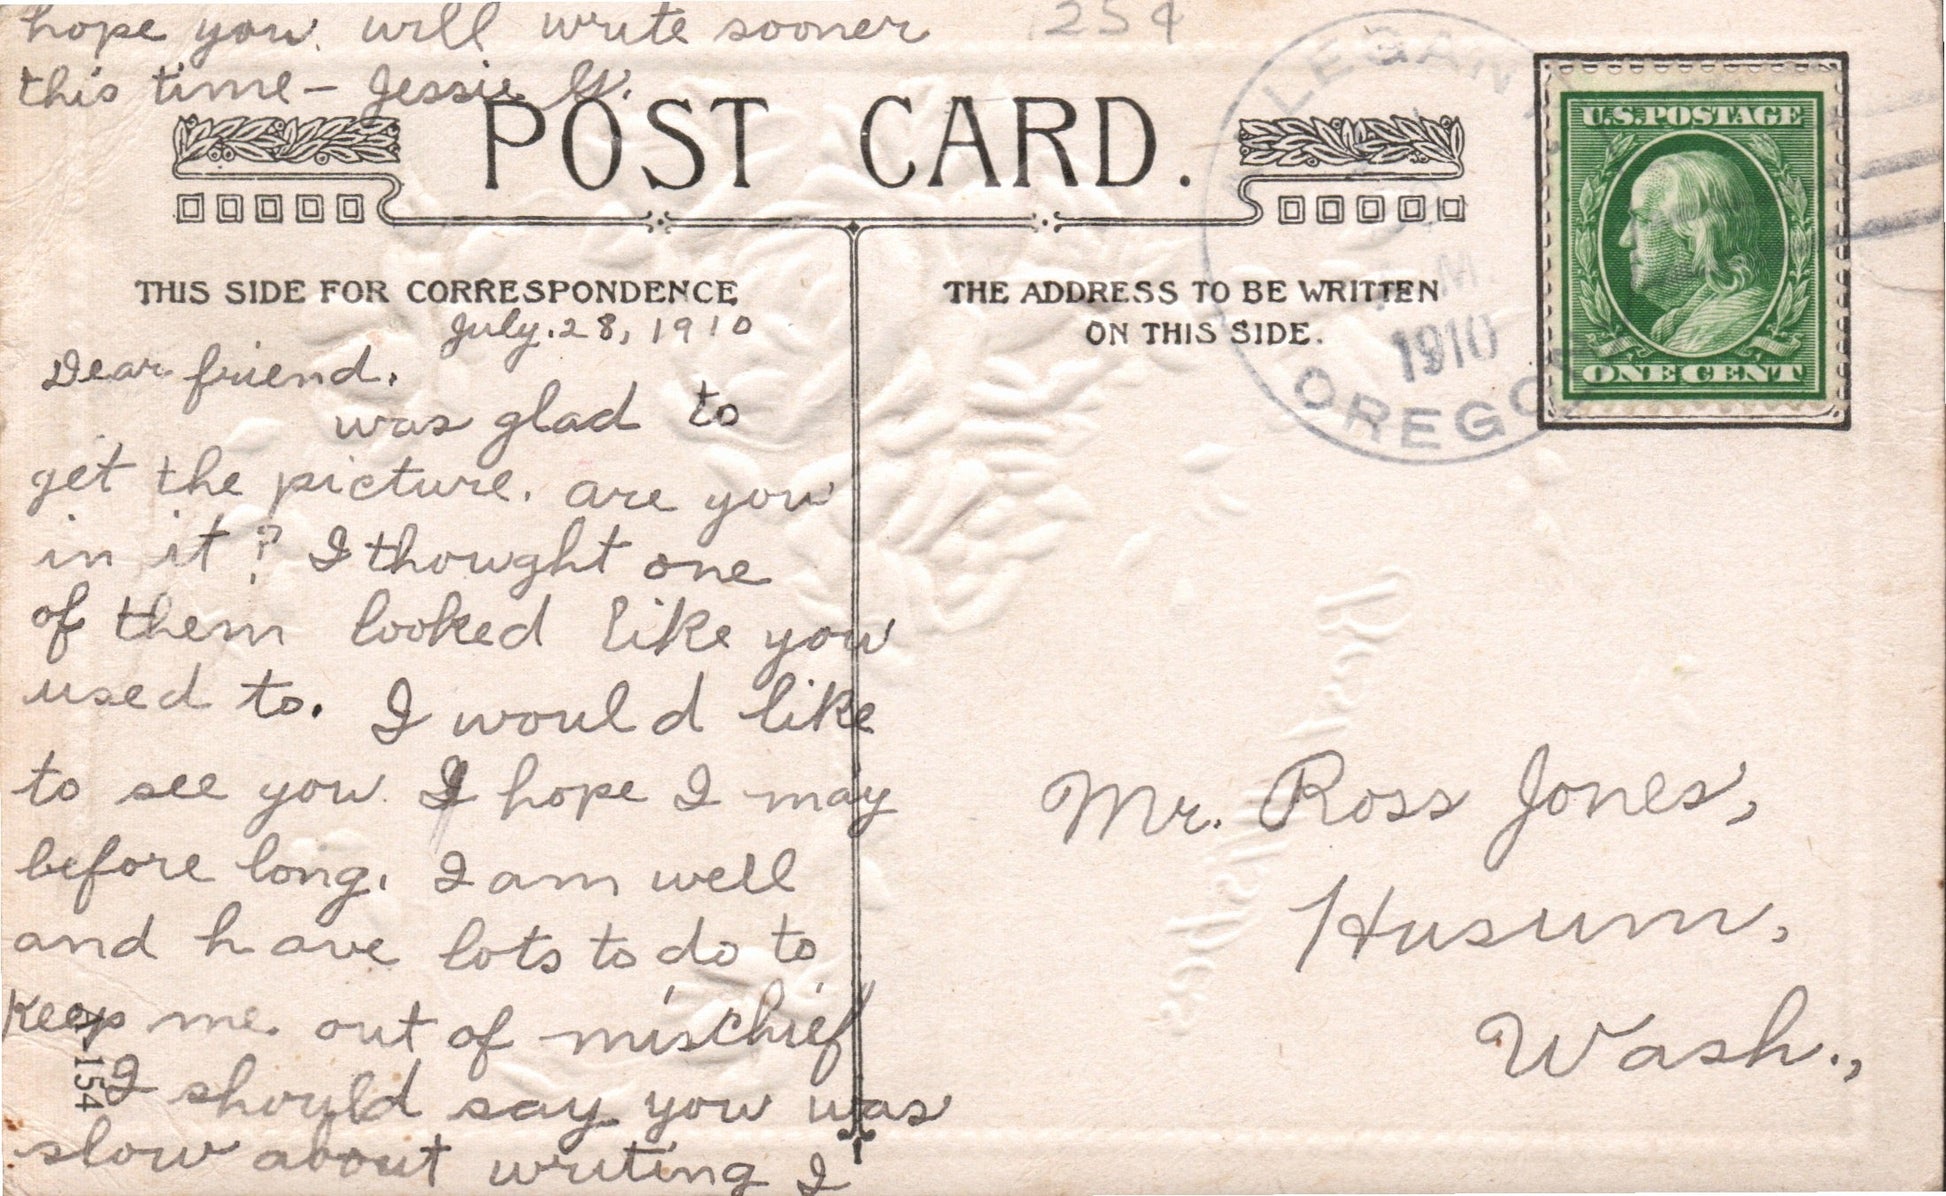 hope you will write sooner
this time - Jessie G.
25¢
POST CARD.
THIS SIDE FOR CORRESPONDENCE
July. 28, 1910
Dear friend.
was glad to
get the picture. are you
in it? I thought one
of them looked like you
used to. I would like
to see you. I hope I may
before long. I am well
and have lots to do to
keep me out of mischief
I should say you was
slow about writing I
A-154
THE ADDRESS TO BE WRITTEN
ON THIS SIDE.
Mr. Ross Jones,
Husum,
Wash.,
LEGAN
M.
1910
OREGO
U.S. POSTAGE
ONE CENT
Best Wishes